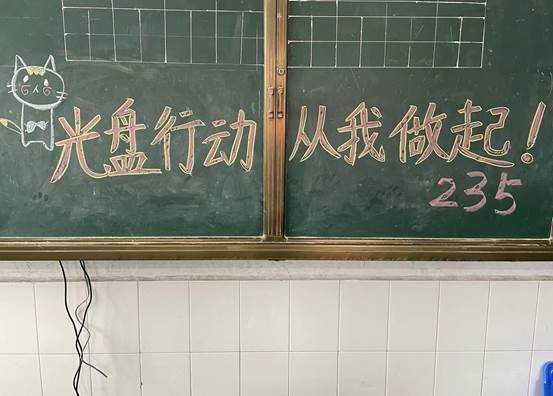 光盘行动 从我做起!
235